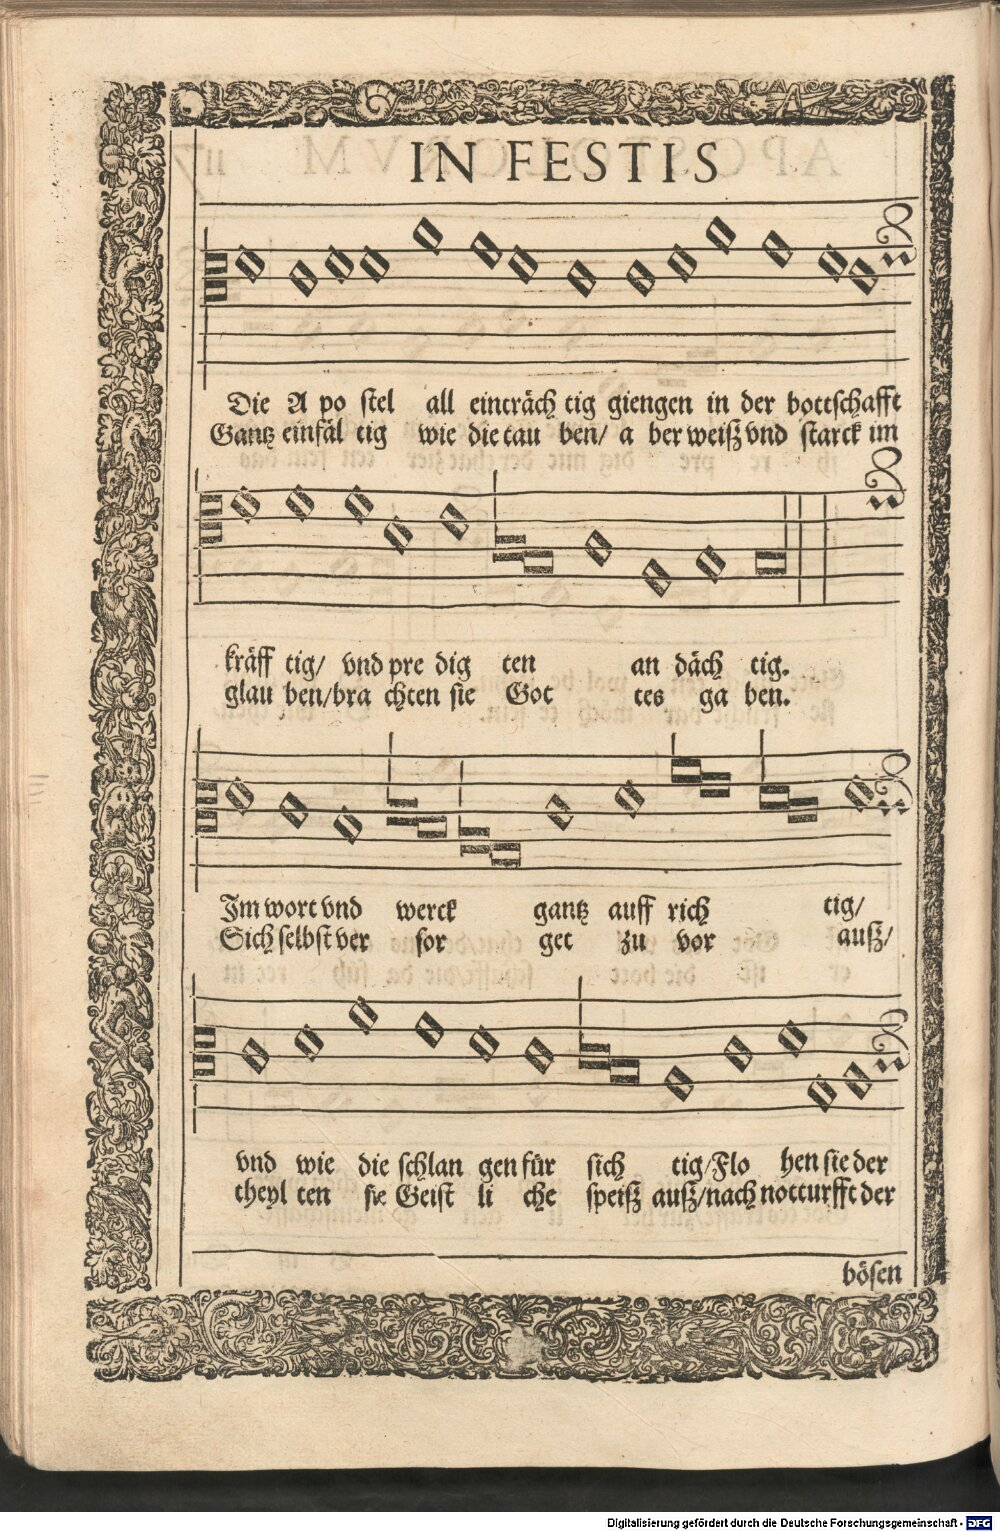 IN FESTIS
Die A po ſtel all einträch tig giengen in der bottſchafft
Gantz einfäl tig wie die tau ben/ a ber weiſz vnd ſtarck im
kräff tig/ vnd pre dig ten an däch tig.
glau ben/bra chten ſie Got tes ga ben.
Im wort vnd werck gantz auff rich tig/
Sich ſelbſt ver ſor get zu vor auſz/
vnd wie die ſchlan gen für ſich tig/Flo hen ſie der
theyl ten ſie Geiſt li che ſpeiſz auſz/nach notturfft der
böſen
Digitalisierung gefördert durch die Deutsche Forschungsgemeinschaft - DFG